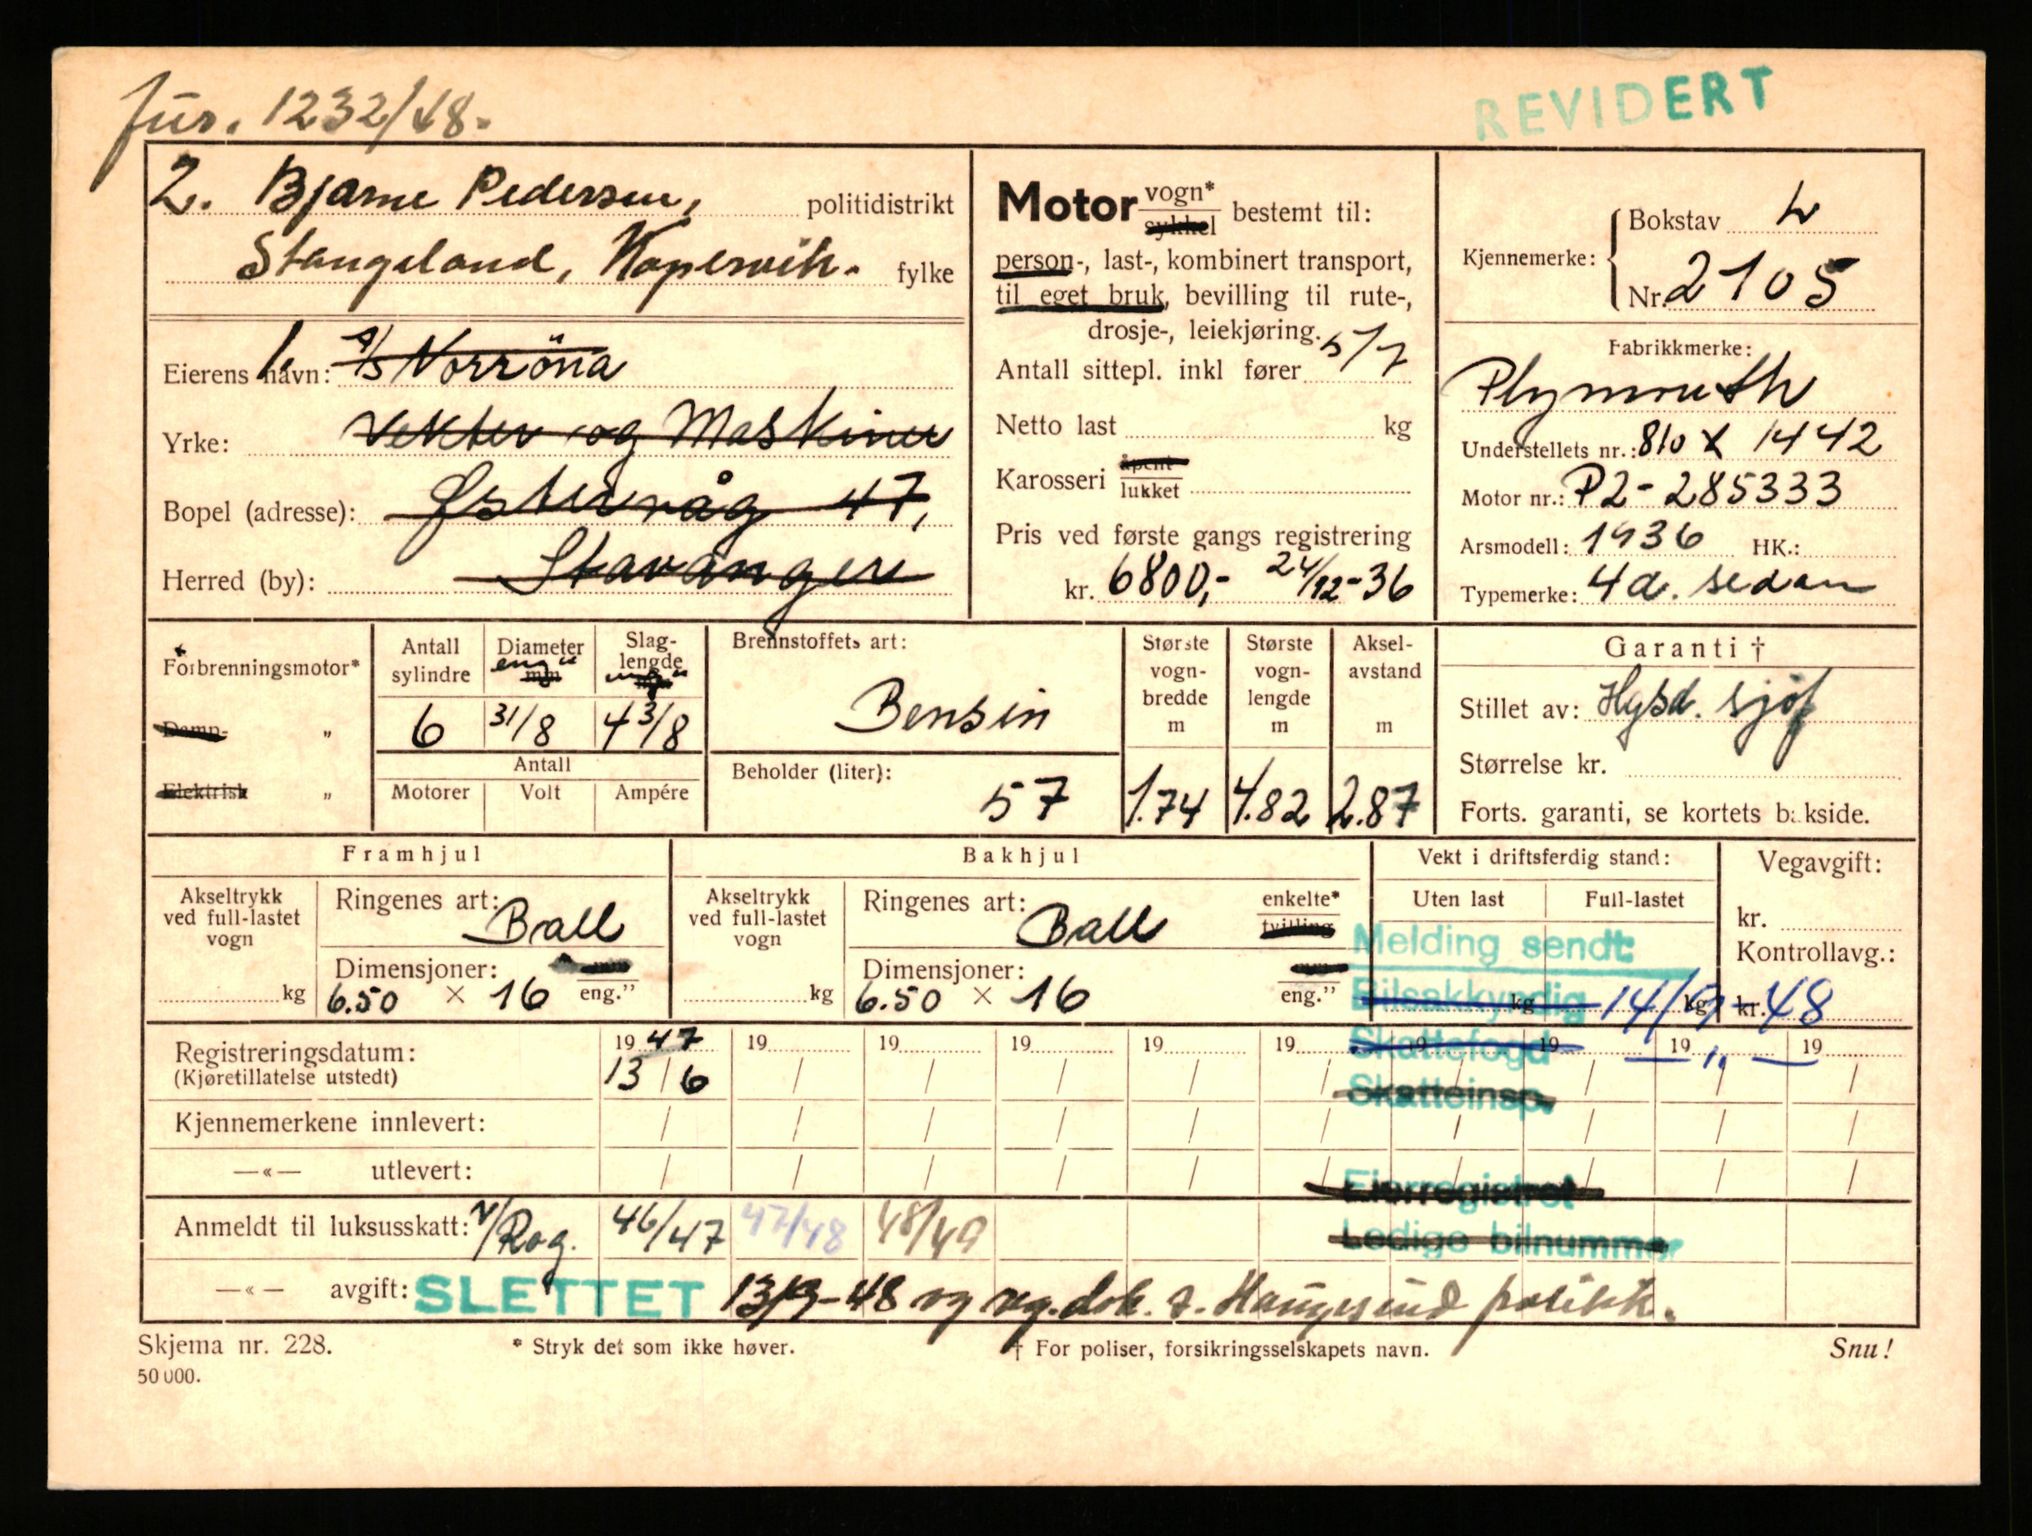 Jur. 1232/48.
REVIDERT
2. Bjarne Pedersen, politidistrikt
Stangeland, Kopervik. fylke
Eierens navn: 1. A/S Norröna
Yrke: Vekter og Maskiner
Bopel (adresse): Østervåg 47,
Herred (by): Stavanger
Motor vogn* sykkel bestemt til:
person-, last-, kombinert transport,
til eget bruk, bevilling til rute-,
drosje-, leiekjøring.
Antall sittepl. inkl fører 5/7
Netto last kg
Karosseri åpent lukket
Pris ved første gangs registrering
kr. 6800,- 24/12-36
Kjennemerke: Bokstav L
Nr. 2105
Fabrikkmerke:
Plymouth
Understellets nr.: 810 X 1442
Motor nr.: P2-285333
Arsmodell: 1936 HK.:
Typemerke: 4d. sedan
Forbrenningsmotor*
Damp- „
Elektrisk „
Antall sylindre
Diameter mm eng"
Slag-lengde mm eng"
6 31/8 4 3/8
Antall
Motorer Volt Ampére
Brennstoffets art:
Bensin
Beholder (liter):
57
Største vogn-bredde m
Største vogn-lengde m
Aksel-avstand m
1.74 4.82 2.87
Garanti †
Stillet av: Hysd. Sjøf
Størrelse kr.
Forts. garanti, se kortets bakside.
Framhjul
Akseltrykk ved full-lastet vogn
kg
Ringenes art:
Ball
Dimensjoner:
6.50 × 16 eng."
Bakhjul
Akseltrykk ved full-lastet vogn
kg
Ringenes art:
Ball
enkelte*
tvilling
Dimensjoner:
6.50 × 16 eng."
Vekt i driftsferdig stand:
Uten last Full-lastet
kg kg
Vegavgift:
kr.
Kontrollavg.:
kr.
Melding sendt:
Bilsakkyndig 14/9-48
Skattefogd — „ —
Skatteinsp.
Eierregistret
Ledige bilnummer
Registreringsdatum: 1947 19 19 19 19 19 19 19 19 19
(Kjøretillatelse utstedt) 13/6 / / / / / / / / /
Kjennemerkene innlevert: / / / / / / / / / /
—«— utlevert: / / / / / / / / / /
Anmeldt til luksusskatt: V/Rog. 46/47 47/48 48/49
—«— avgift: SLETTET 13/9-48 og vg.dok. s. Haugesund politik.
Skjema nr. 228.
* Stryk det som ikke høver.
† For poliser, forsikringsselskapets navn.
Snu!
50 000.